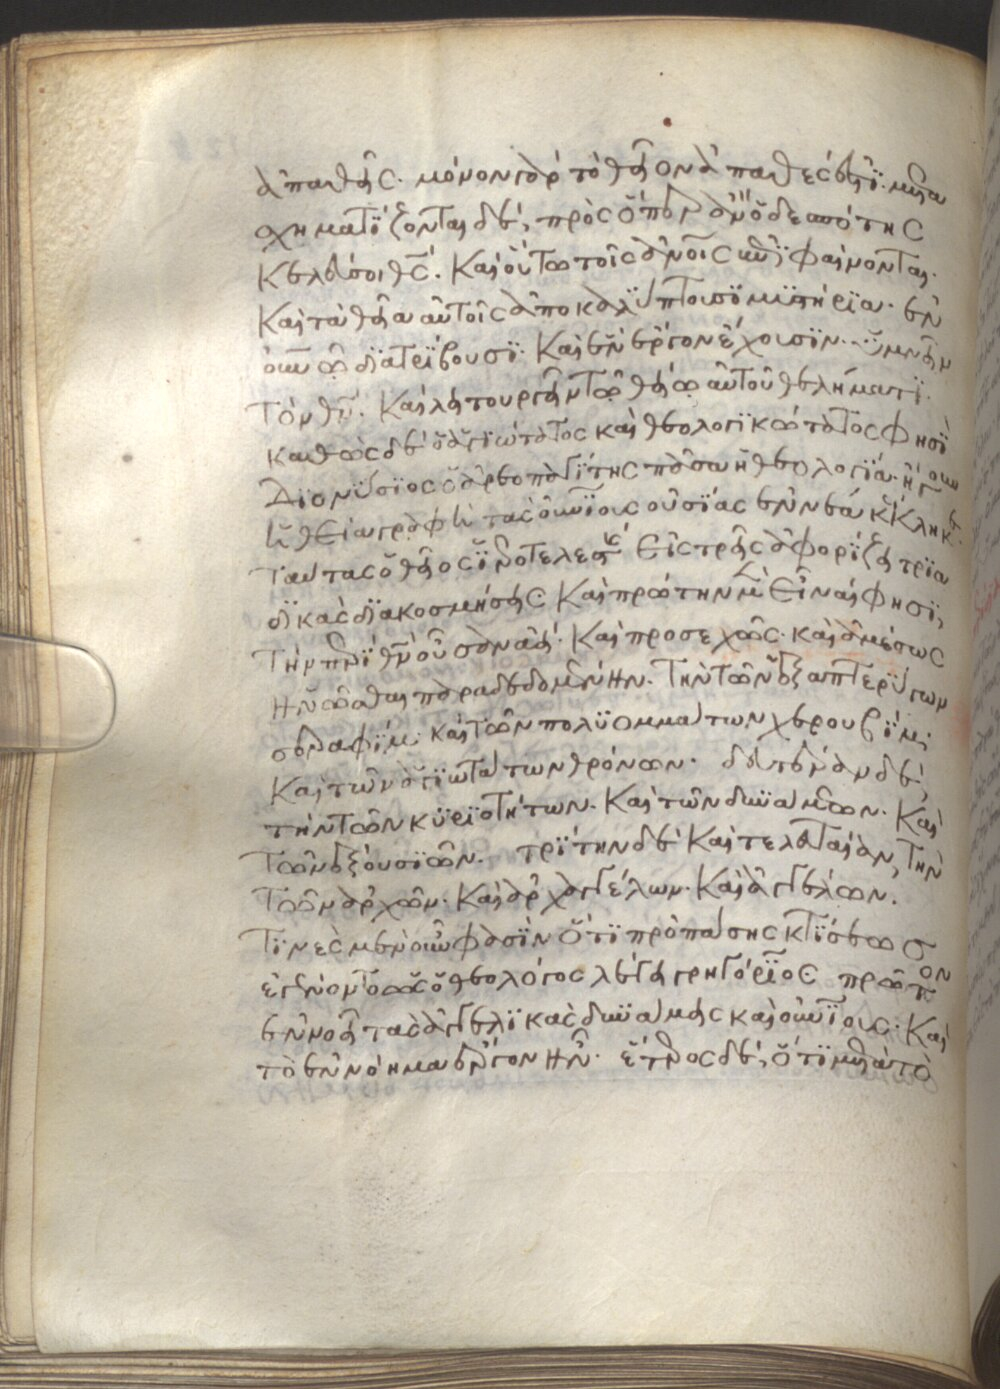 ἀπαθεῖς. μόνον γὰρ τὸ θεῖον ἀπαθές ἐστϊ. μετα
σχηματϊζονται δὲ, πρὸς ὅπερ ἂν ὁ δεσπότης
κελεύσοι θς. Καὶ οὕτω τοῖς ἀνοις ἐπϊφαίνονται.
Καὶ τὰ θεῖα αὐτοῖς ἀποκαλϋπτουσϊ μυστήρϊα. ἐν
οὐνω διατρϊβουσϊ. Καὶ ἓν ἔργον ἔχουσϊν. ὑμνεῖν
τὸν θν. Καὶ λειτουργεῖν τῶ θείω αὐτοῦ θελήματϊ.
καθὼς δὲ ὁ ἁγϊώτατος καὶ θεολογϊκώτατος φησὶ
Διονϋσϊος ὁ ἀρεοπαγίτης πᾶσα ἡ θεολογϊα. ἤγουν
ἡ θεία γραφὴ τὰς οὐνϊους οὐσϊας ἐννέα κέκληκε.
ταύτας ὁ θεῖος ἱεροτελεστὴς εἰς τρεῖς ἀφορϊζει τρϊα
δϊκὰς διακοσμήσεις Καὶ πρώτην μὲν εἶναί φησϊ,
τὴν περϊ θν οὖσαν ἀεὶ. Καὶ προσεχῶς. καὶ ἀμέσως
ἡνῶσθαι παραδεδομένην. Τὴν τῶν ἑξαπτερϋγων
σεραφϊμ. καὶ τῶν πολϋομμάτων χερουβϊμ.
Καὶ τῶν ἁγϊωτάτων θρόνων. δευτέραν δὲ,
τὴν τῶν κϋρϊοτήτων. Καὶ τῶν δυνάμεων. Καὶ
τῶν ἐξουσϊῶν. τρϊτην δὲ Καὶ τελευταίαν, τὴν
τῶν ἀρχῶν. Καὶ ἀρχαγγέλων. Καὶ ἀγγέλων.
Τϊνὲς μὲν οὖν φασὶν ὅτϊ πρὸ πάσης κτϊσεως
ἐγένοντο ὡς ὁ θεολόγος λέγει γρηγόρϊος πρῶτον
ἐννοεῖ τὰς ἀγγελϊκὰς δυνάμεις καὶ οὐνϊους. Καὶ
τὸ ἐννόημα ἔργον ἦν. ἕτεροι δὲ, ὅτϊ μετὰ τὸ